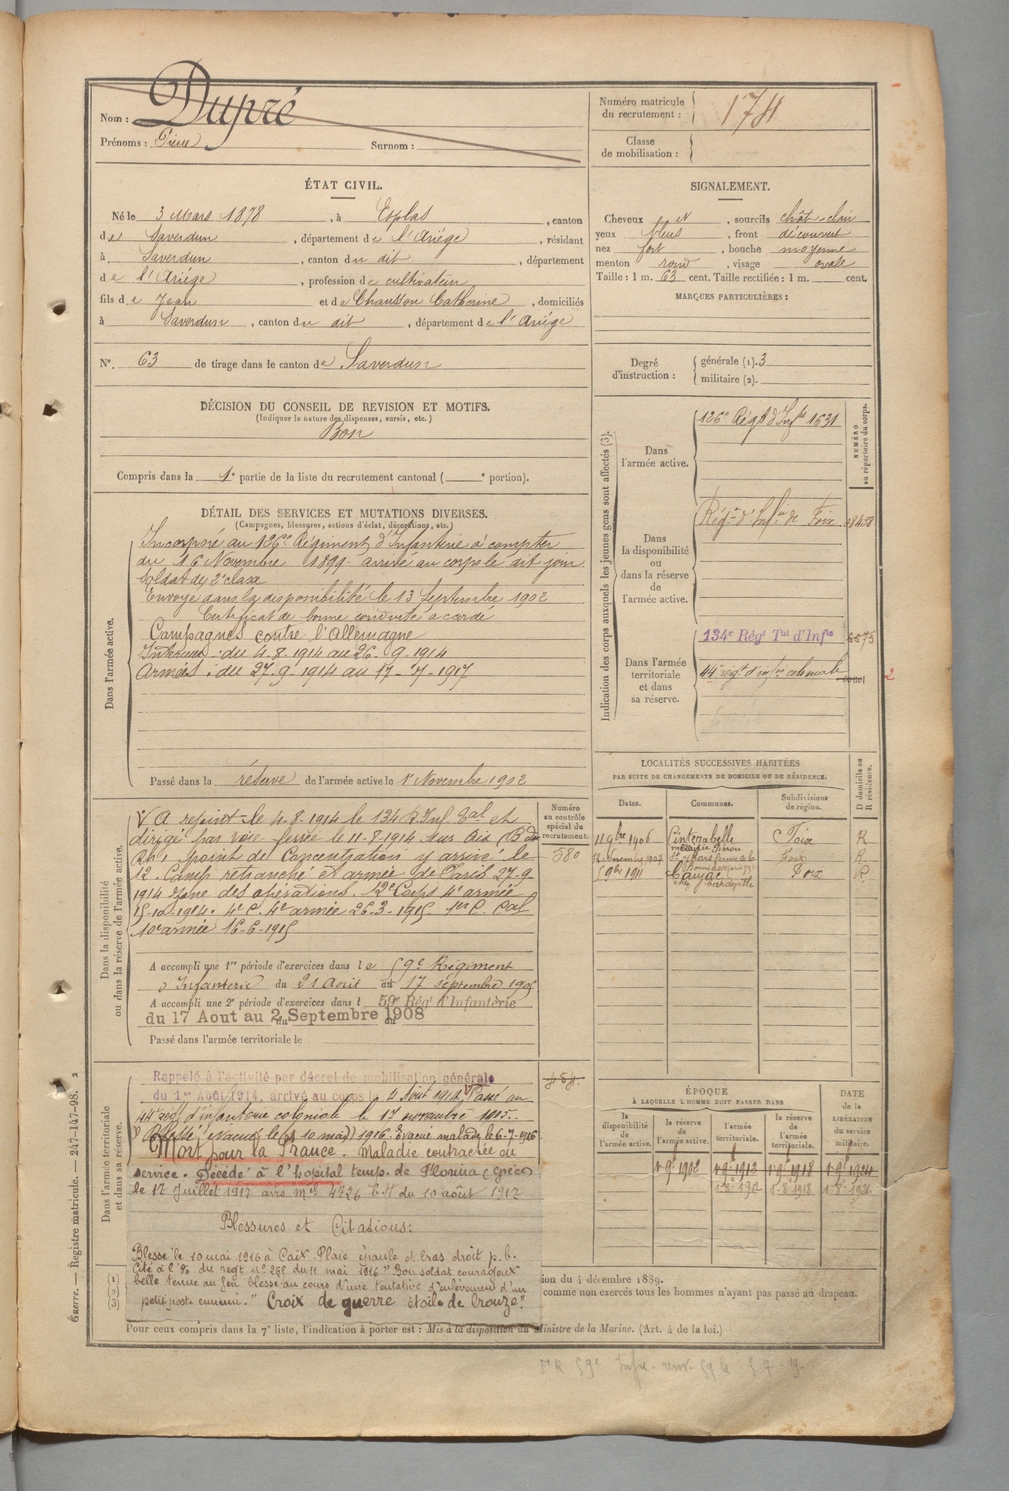 Nom : Dupré
Prénoms : Pierre Surnom :
Numéro matricule
du recrutement : 1741
Classe
de mobilisation :
ÉTAT CIVIL.
Né le 3 Mars 1878, à Esplas, canton
de Saverdun, département de l'Ariège, résidant
à Saverdun, canton du dit, département
de l'Ariège, profession de cultivateur
fils de Jean et de Chausson Catherine, domiciliés
à Saverdun, canton du dit, département de l'Ariège
N° 63 de tirage dans le canton de Saverdun
SIGNALEMENT.
Cheveux et, sourcils chât-clair
yeux bleus, front découvert
nez fort, bouche moyenne
menton rond, visage ovale
Taille : 1 m. 63 cent. Taille rectifiée : 1 m. cent.
MARQUES PARTICULIÈRES :
Degré
d'instruction :
générale (1). 3
militaire (2).
DÉCISION DU CONSEIL DE REVISION ET MOTIFS.
(Indiquer la nature des dispenses, sursis, etc.)
Bon
Compris dans la 1e partie de la liste du recrutement cantonal ( e portion).
Indication des corps auxquels les jeunes gens sont affectés (3).
NUMÉRO
au répertoire du corps.
Dans
l'armée active.
126e Régt d'Infie 1631
Dans
la disponibilité
ou
dans la réserve
de
l'armée active.
Régt d'Infie de Foix
Dans l'armée
territoriale
et dans
sa réserve.
134e Régt Tal d'Infie
44e régt d'infie coloniale
2
DÉTAIL DES SERVICES ET MUTATIONS DIVERSES.
(Campagnes, blessures, actions d'éclat, décorations, etc.)
Dans l'armée active.
Incorporé au 126e Régiment d'Infanterie à compter
du 16 Novembre 1899 arrivé au corps le dit jour
Soldat de 2e classe
Envoyé dans la disponibilité le 13 Septembre 1902
Certificat de bonne conduite accordé
Campagnes contre l'Allemagne
Intérieur : du 4-8-1914 au 26-9-1914
Armées : du 27-9-1914 au 17-7-1917
Passé dans la réserve de l'armée active le 1er Novembre 1902
Dans la disponibilité
ou dans la réserve de l'armée active.
Numéro
au contrôle
spécial du
recrutement.
580
A rejoint le 4-8-1914 le 134 R. Inf. Tal et
dirigé par voie ferrée le 11-8-1914 sur Aix (B du
Rh.) point de concentration y arrivé le
12. Camp retranché et armée de Paris 27-9
1914 Zone des opérations. 12e Corps 4e armée
15-10-1914. 4e C. 4e armée 26-3-1915. 1er C. Cal
10e armée 16-6-1915
A accompli une 1re période d'exercices dans le 59e Régiment
d'Infanterie du 21 Août au 17 septembre 1905
A accompli une 2e période d'exercices dans l 59e Régt d'Infanterie
du 17 Aout au 2 Septembre 1908
Passé dans l'armée territoriale le
LOCALITÉS SUCCESSIVES HABITÉES
PAR SUITE DE CHANGEMENTS DE DOMICILE OU DE RÉSIDENCE.
Dates. Communes. Subdivisions
de région. D domicile ou
R résidence.
11 9bre 1906 Cintegabelle Foix R
Foix R
9bre 1911 Canjac Foix R
Dans l'armée territoriale
et dans sa réserve.
Rappelé à l'activité par décret de mobilisation générale
du 1er Août 1914, arrivé au corps le 4 Août 1914 Passé au
44e régt d'infanterie coloniale le 17 novembre 1915.
Blessé, évacué le 10 mai 1916. Evacué malade le 6-7-1916
Mort pour la France. Maladie contractée au
service. Décédé à l'hopital temp. de Florina (Grèce)
le 17 Juillet 1917 avis mel 4426 du 10 août 1917
Blessures et Citations :
Blessé le 10 mai 1916 à Caix. Plaie épaule et bras droit p. b.
Cité à l'O du regt n° 298 du 11 mai 1916 "Bon soldat courageux
belle tenue au feu, blessé au cours d'une tentative d'enlèvement d'un
petit poste ennemi." Croix de guerre étoile de bronze.
ÉPOQUE
À LAQUELLE L'HOMME DOIT PASSER DANS
la
disponibilité
de
l'armée active.
la réserve
de
l'armée active.
l'armée
territoriale.
la réserve
de
l'armée
territoriale.
DATE
de la
LIBÉRATION
du service
militaire.
1-9bre 1902 1-9bre 1912 1-9bre 1918 1-9bre 1924
1-8-1912 1-8-1918 1-8-1924
(1)
(2)
(3)
ion du 4 décembre 1889.
comme non exercés tous les hommes n'ayant pas passé au drapeau.
Pour ceux compris dans la 7e liste, l'indication à porter est : Mis à la disposition du Ministre de la Marine. (Art. 4 de la loi.)
Guerre. — Registre matricule. — 247-147-98. 2